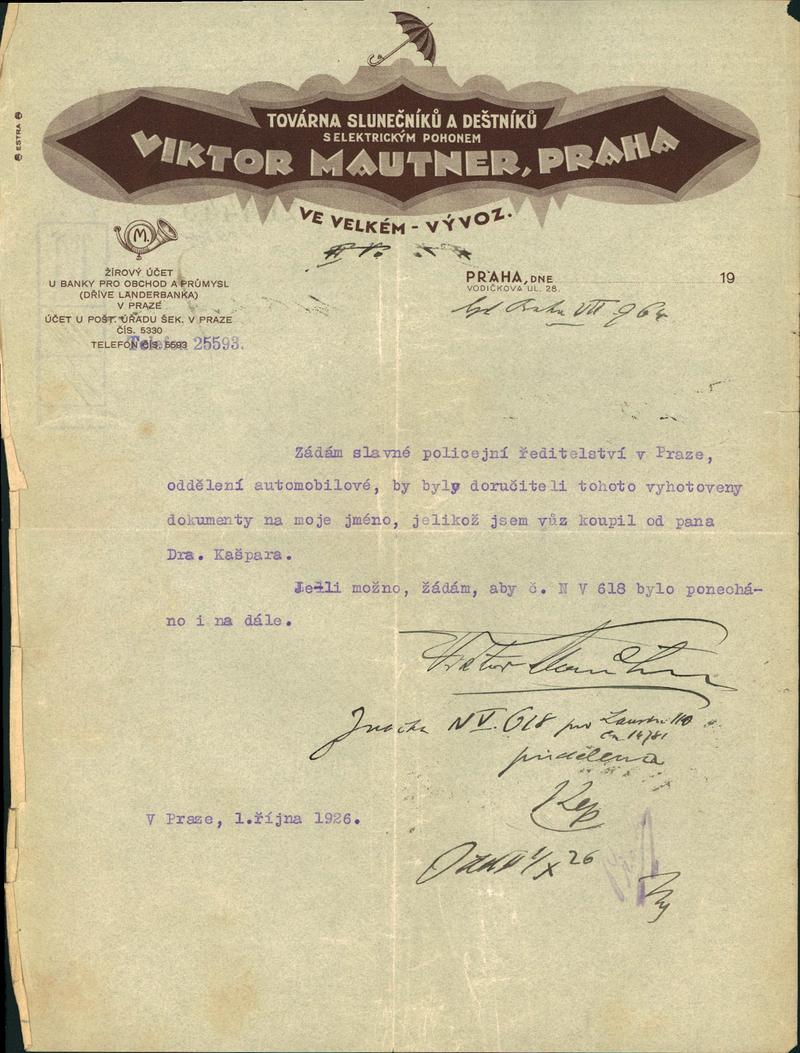 TOVÁRNA SLUNEČNÍKŮ A DEŠTNÍKŮ
S ELEKTRICKÝM POHONEM
VIKTOR MAUTNER, PRAHA
VE VELKÉM - VÝVOZ.
ESTRA
M.
ŽÍROVÝ ÚČET
U BANKY PRO OBCHOD A PRŮMYSL
(DŘÍVE LÄNDERBANKA)
V PRAZE
ÚČET U POŠT. ÚŘADU ŠEK. V PRAZE
ČÍS. 5330
TELEFON ČÍS. 5593
Telefon 25593.
PRAHA, DNE 19
VODIČKOVA UL. 28.
Praha VII
Zádám slavné policejní ředitelství v Praze,
oddělení automobilové, by byly doručiteli tohoto vyhotoveny
dokumenty na moje jméno, jelikož jsem vůz koupil od pana
Dra. Kašpara.
Je-li možno, žádám, aby č. N V 618 bylo ponechá-
no i na dále.
Viktor Mautner
Značka N V. 618 pro
přidělena
V Praze, 1.října 1926.
1/X 26